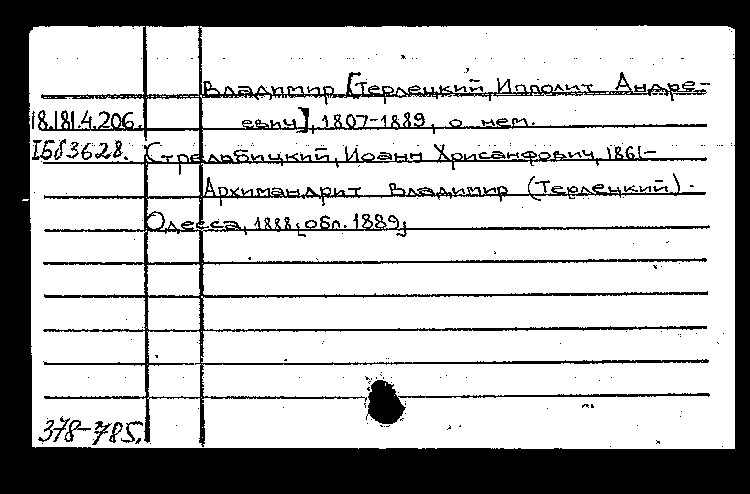 Владимир [Терлецкий, Ипполит Андре-
18.181.4.206. евич], 1807-1889, о нем.
I583628. Стрельбицкий, Иоанн Хрисанфович, 1861-
Архимандрит Владимир (Терлецкий).
Одесса, 1888[обл. 1889]
378-785.